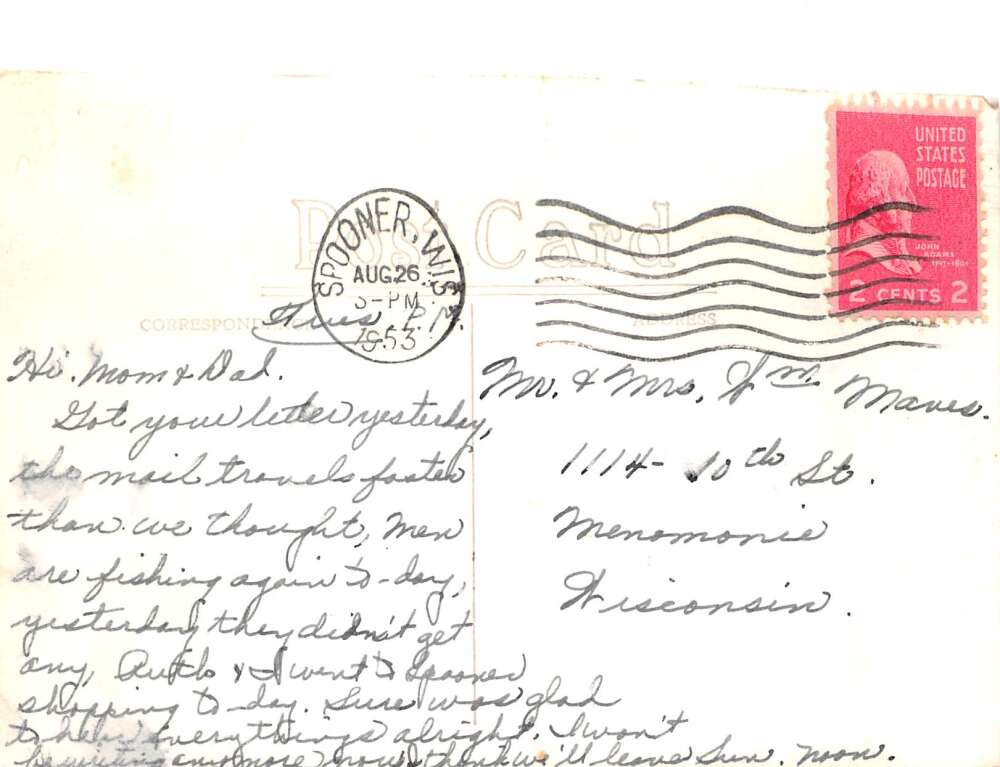 UNITED
STATES
POSTAGE
JOHN
ADAMS
1797-1801
2 CENTS 2
Post Card
SPOONER, WIS.
AUG 26
3-PM
1953
CORRESPONDENCE
ADDRESS
P.M.
Hi. Mom & Dad.
Got your letter yesterday,
the mail travels faster
than we thought, Men
are fishing again to-day,
yesterday they didn't get
any, Ruth & I went to Spooner
shopping to-day. Sure was glad
to hear everythings alright. I won't
be writing anymore now I think we'll leave Sun. noon.
Mr. & Mrs. Wm. Maves.
1114- 10th St.
Menomonie
Wisconsin.